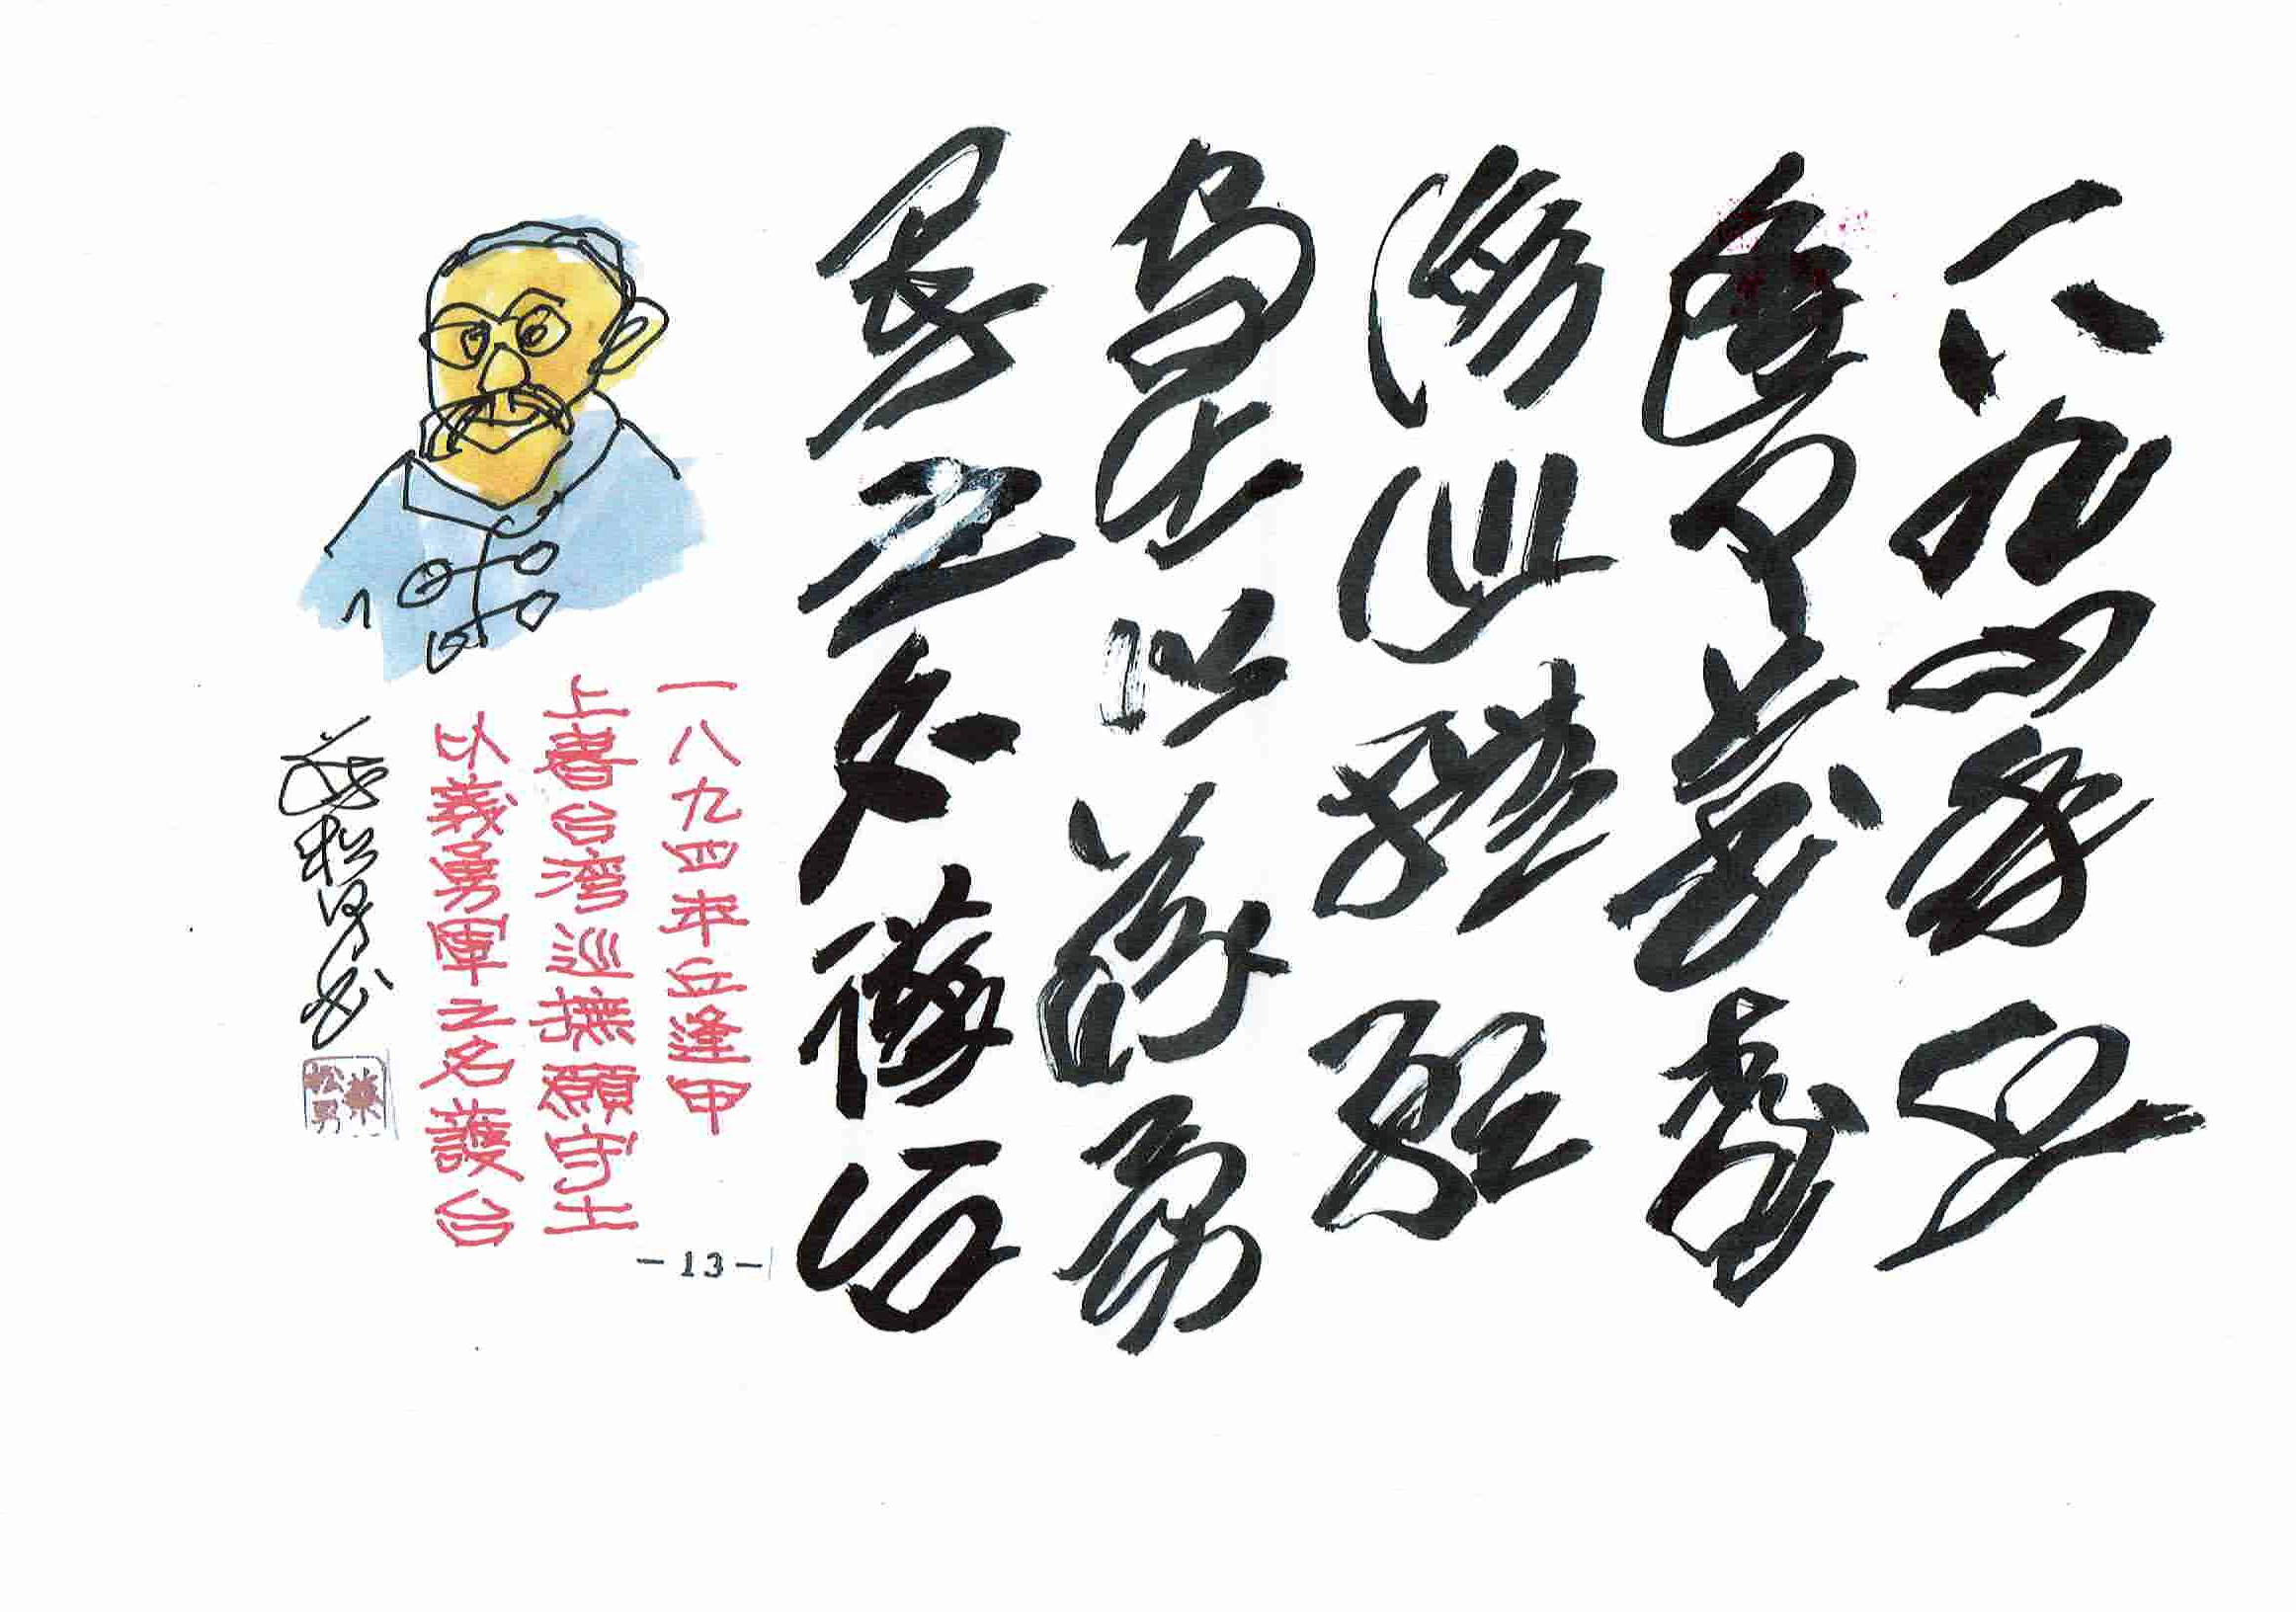 一八九四年丘
逢甲上書台
灣巡撫願
守土以義勇
軍之名護台
一八九四年丘逢甲
上書台湾巡撫願守土
以義勇軍之名護台
松男
-13-